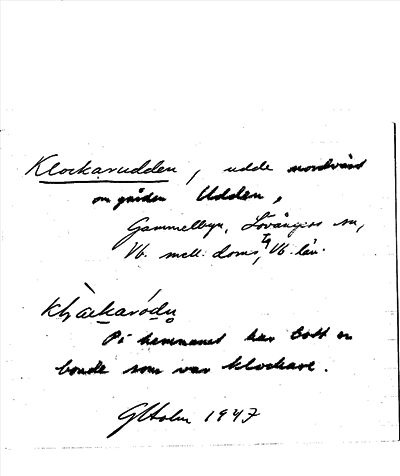 Klockarudden, udde nordväst
om gården Udden,
Gammelbyn, Lövångers sn,
Vb. mell. doms, Vb. län.
På hemmanet har bott en
bonde som var klockare.
GHolm 1947